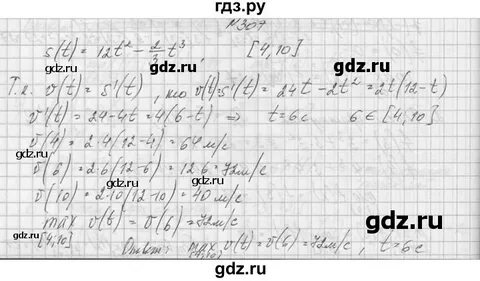 гдз.ру
№307
s(t) = 12t² - 2/3 t³, [4,10]
Т.к. v(t) = s'(t), то v(t)=s'(t) = 24t - 2t² = 2t(12-t)
v'(t) = 24-4t = 4(6-t) ⇒ t=6c 6 ∈ [4,10]
v(4) = 2·4(12-4) = 64 м/с
v(6) = 2·6(12-6) = 12·6 = 72 м/с
v(10) = 2·10(12-10) = 40 м/с
max v(t) = v(6) = 72 м/с
[4,10]
Ответ: max v(t) = v(6) = 72 м/с, t=6c
[4,10]
gdz.ru
gdz.ru
gdz.ru
gdz.ru
gdz.ru
gdz.ru
gdz.ru